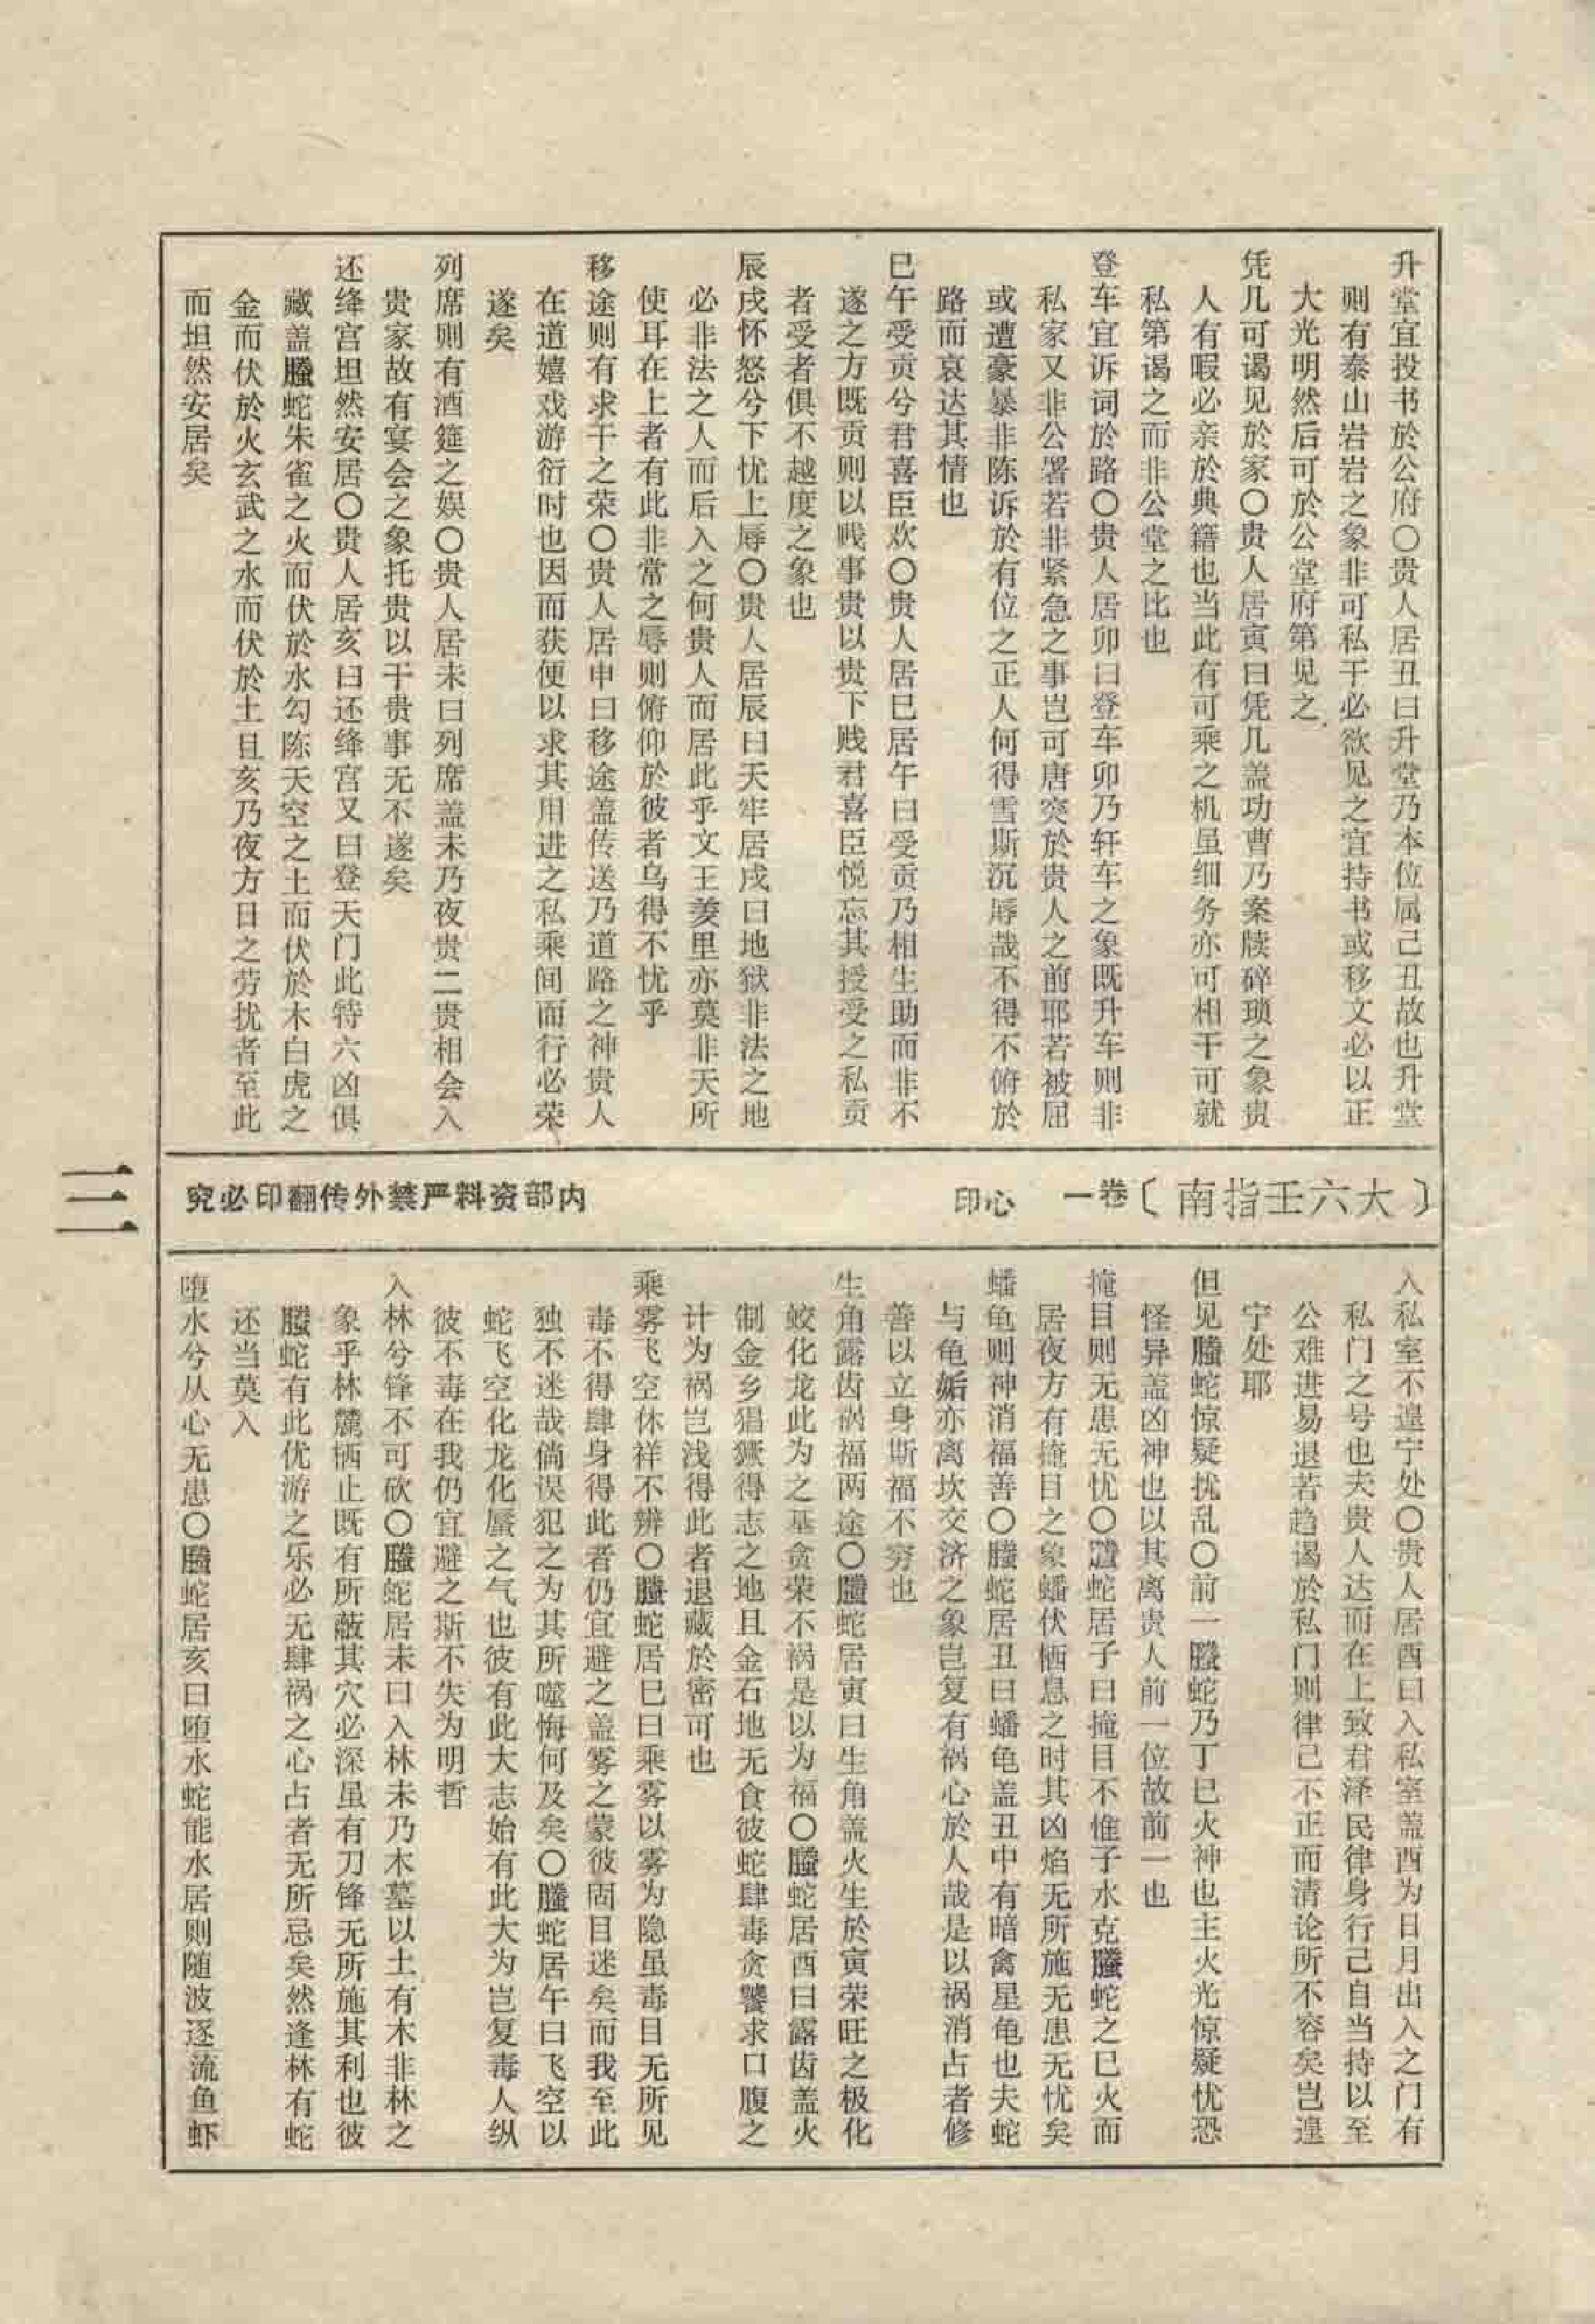 升堂宜投书於公府〇贵人居丑曰升堂乃本位属己丑故也升堂
则有泰山岩岩之象非可私干必欲见之宜持书或移文必以正
大光明然后可於公堂府第见之
凭几可谒见於家〇贵人居寅曰凭几盖功曹乃案牍碎琐之象贵
人有暇必亲於典籍也当此有可乘之机虽细务亦可相干可就
私第谒之而非公堂之比也
登车宜诉词於路〇贵人居卯曰登车卯乃轩车之象既升车则非
私家又非公署若非紧急之事岂可唐突於贵人之前耶若被屈
或遭豪暴非陈诉於有位之正人何得雪斯沉辱哉不得不俯於
路而哀达其情也
巳午受贡兮君喜臣欢〇贵人居巳居午曰受贡乃相生助而非不
遂之方既贡则以贱事贵以贵下贱君喜臣悦忘其授受之私贡
者受者俱不越度之象也
辰戌怀怒兮下忧上辱〇贵人居辰曰天牢居戌曰地狱非法之地
必非法之人而后入之何贵人而居此乎文王羑里亦莫非天所
使耳在上者有此非常之辱则俯仰於彼者乌得不忧乎
移途则有求干之荣〇贵人居申曰移途盖传送乃道路之神贵人
在道嬉戏游衍时也因而获便以求其用进之私乘间而行必荣
遂矣
列席则有酒筵之娱〇贵人居未曰列席盖未乃夜贵二贵相会入
贵家故有宴会之象托贵以干贵事无不遂矣
还绛宫坦然安居〇贵人居亥曰还绛宫又曰登天门此特六凶俱
藏盖螣蛇朱雀之火而伏於水勾陈天空之土而伏於木白虎之
金而伏於火玄武之水而伏於土且亥乃夜方日之劳扰者至此
而坦然安居矣
〔大六壬指南〕卷一 心印 内部资料严禁外传翻印必究
三
入私室不遑宁处〇贵人居酉曰入私室盖酉为日月出入之门有
私门之号也夫贵人达而在上致君泽民律身行己自当持以至
公难进易退若趋谒於私门则律己不正而清论所不容矣岂遑
宁处耶
但见螣蛇惊疑扰乱〇前一螣蛇乃丁巳火神也主火光惊疑忧恐
怪异盖凶神也以其离贵人前一位故前一也
掩目则无患无忧〇螣蛇居子曰掩目不惟子水克螣蛇之巳火而
居夜方有掩目之象蟠伏栖息之时其凶焰无所施无患无忧矣
蟠龟则神消福善〇螣蛇居丑曰蟠龟盖丑中有暗禽星龟也夫蛇
与龟姤亦离坎交济之象岂复有祸心於人哉是以祸消占者修
善以立身斯福不穷也
生角露齿祸福两途〇螣蛇居寅曰生角盖火生於寅荣旺之极化
蛟化龙此为之基贪荣不祸是以为福〇螣蛇居酉曰露齿盖火
制金乡猖獗得志之地且金石地无食彼蛇肆毒贪饕求口腹之
计为祸岂浅得此者退藏於密可也
乘雾飞空休祥不辨〇螣蛇居巳曰乘雾以雾为隐虽毒目无所见
毒不得肆身得此者仍宜避之盖雾之蒙彼固目迷矣而我至此
独不迷哉倘误犯之为其所噬悔何及矣〇螣蛇居午曰飞空以
蛇飞空化龙化蜃之气也彼有此大志始有此大为岂复毒人纵
彼不毒在我仍宜避之斯不失为明哲
入林兮锋不可砍〇螣蛇居未曰入林未乃木墓以土有木非林之
象乎林麓栖止既有所蔽其穴必深虽有刀锋无所施其利也彼
螣蛇有此优游之乐必无肆祸之心占者无所忌矣然逢林有蛇
还当莫入
堕水兮从心无患〇螣蛇居亥曰堕水蛇能水居则随波逐流鱼虾